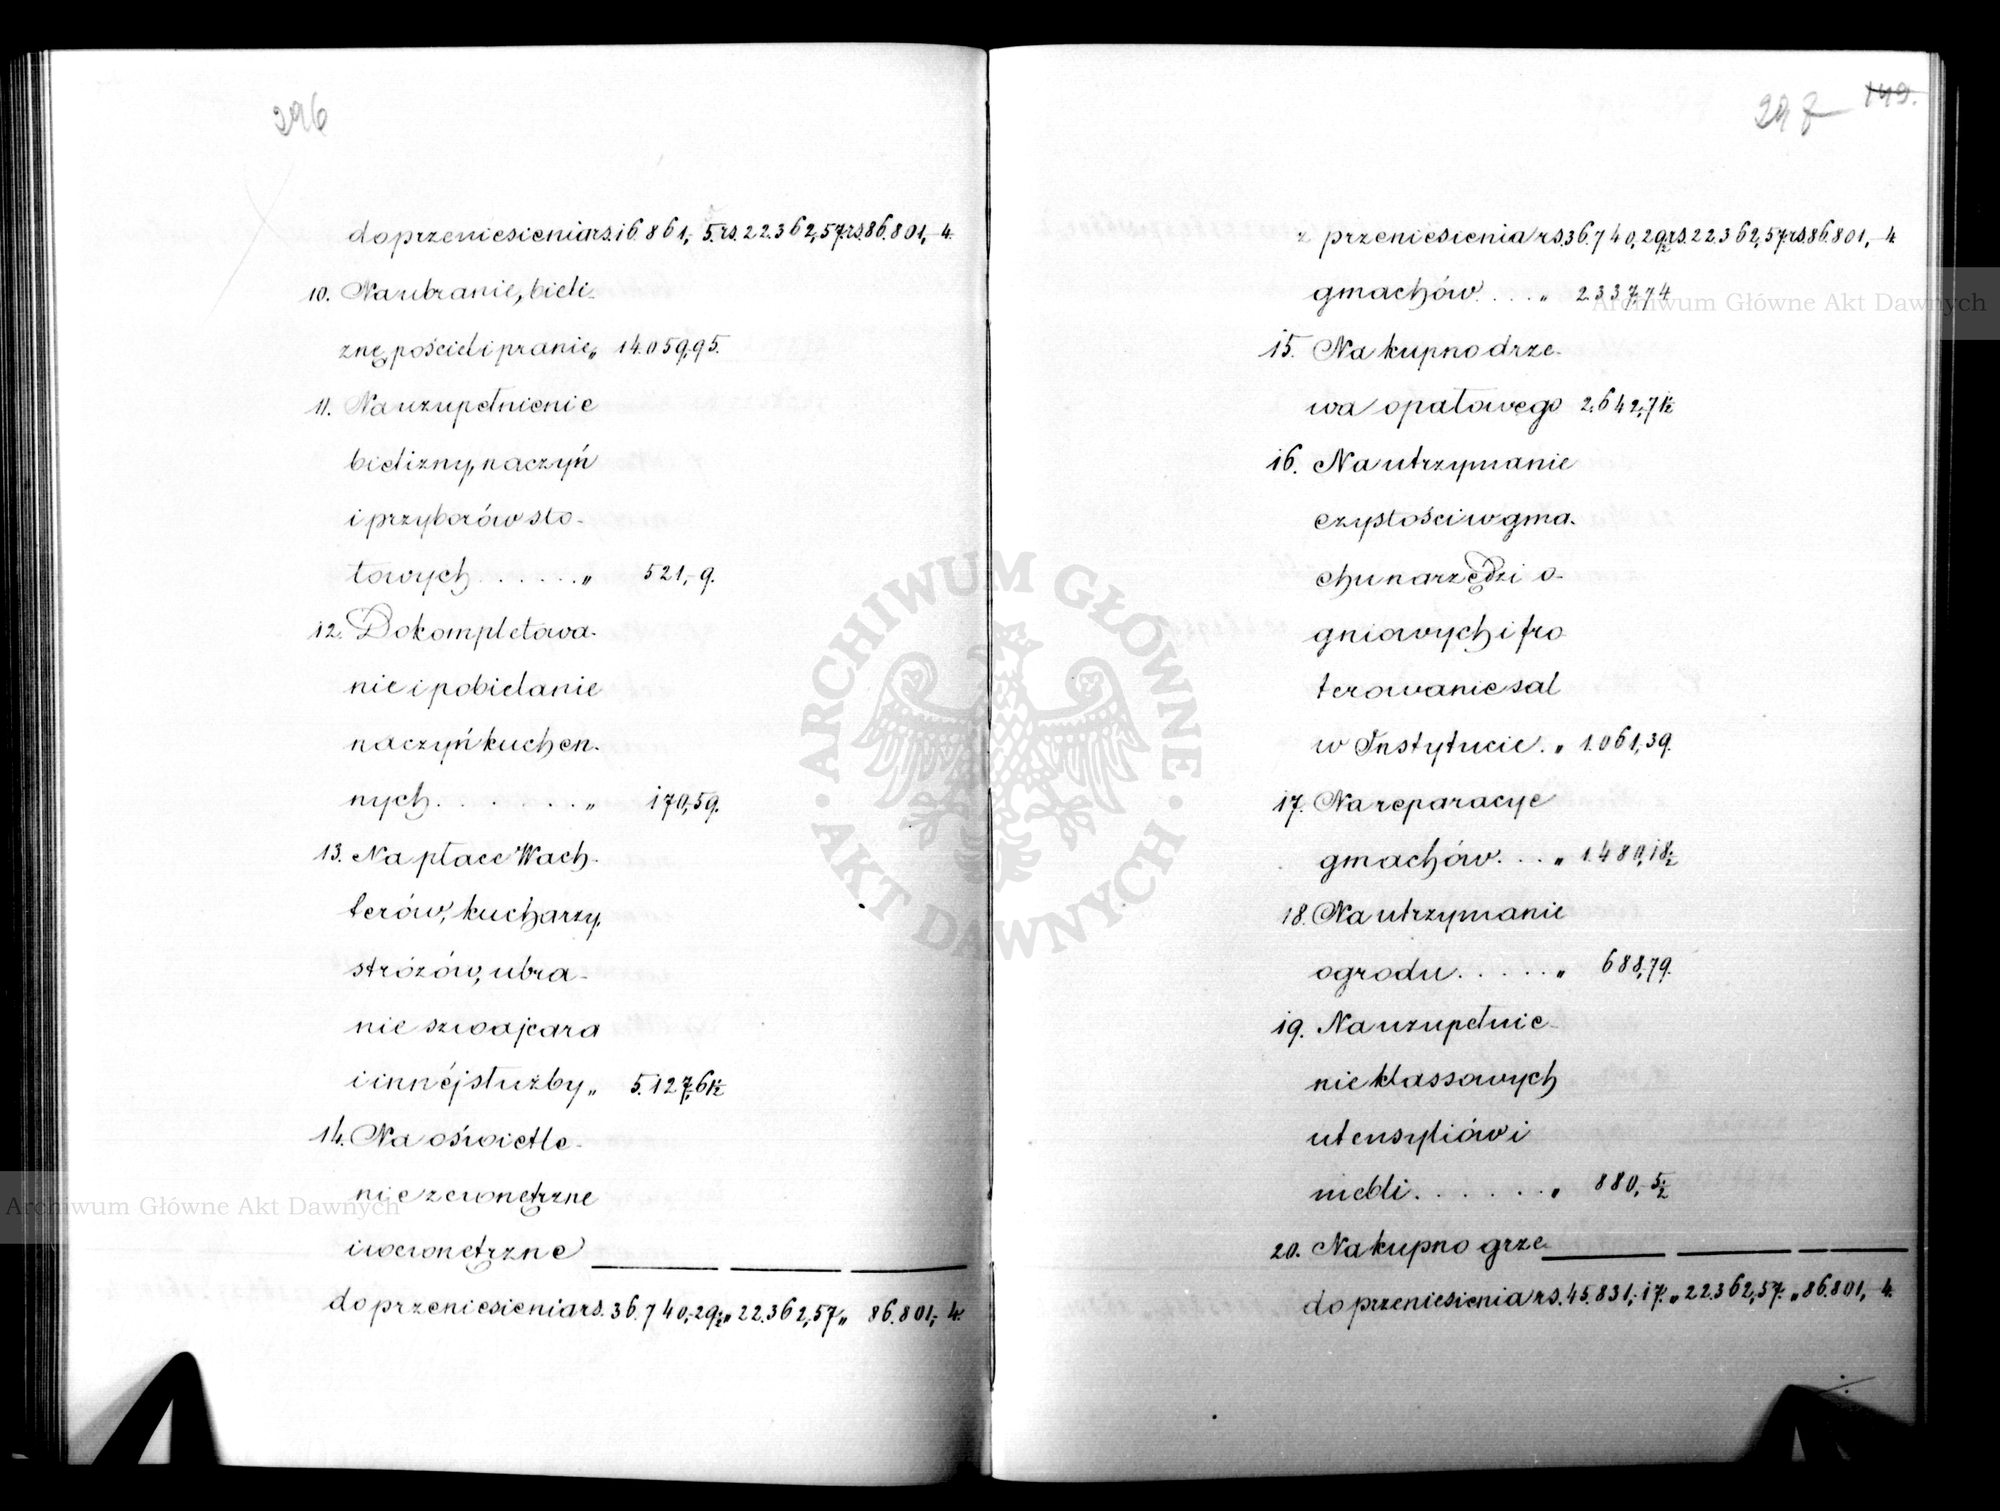 296
do przeniesienia rs. 16.861,-5. rs. 22.362,57. rs. 86.801,-4.
10. Na ubranie, bieli-
znę, pościel i pranie „ 14.059,95.
11. Na uzupełnienie
bielizny, naczyń
i przyborów sto-
łowych . . . . . . „ 521,-9.
12. Dokompletowa-
nie i pobielanie
naczyń kuchen-
nych . . . . . . . „ 170,59.
13. Na płace Wach-
terów, kucharzy,
stróżów, ubra-
nie szwajcara
i innéj służby „ 5.127,61½
14. Na oświetle-
nie zewnętrzne
i wewnętrzne
do przeniesienia rs. 36.740,-29½ „ 22.362,57 „ 86.801,-4.
297 149.
z przeniesienia rs. 36.740,29½ rs. 22.362,57. rs. 86.801,-4.
gmachów . . . „ 2337,74
15. Na kupno drze-
wa opałowego 2.642,71½
16. Na utrzymanie
czystości w gma-
chu narzędzi o-
gniowych i fro
terowanie sal
w Instytucie . „ 1.061,39.
17. Na reparacye
gmachów . . . „ 1.480,18½
18. Na utrzymanie
ogrodu . . . . . „ 688,79.
19. Na uzupełnie-
nie klassowych
utensyliów i
mebli . . . . . . „ 880,-5½
20. Na kupno grze-
do przeniesienia rs. 45.831,-17. „ 22.362,57. „ 86.801,-4.
Archiwum Główne Akt Dawnych
Archiwum Główne Akt Dawnych
ARCHIWUM GŁÓWNE · AKT DAWNYCH ·